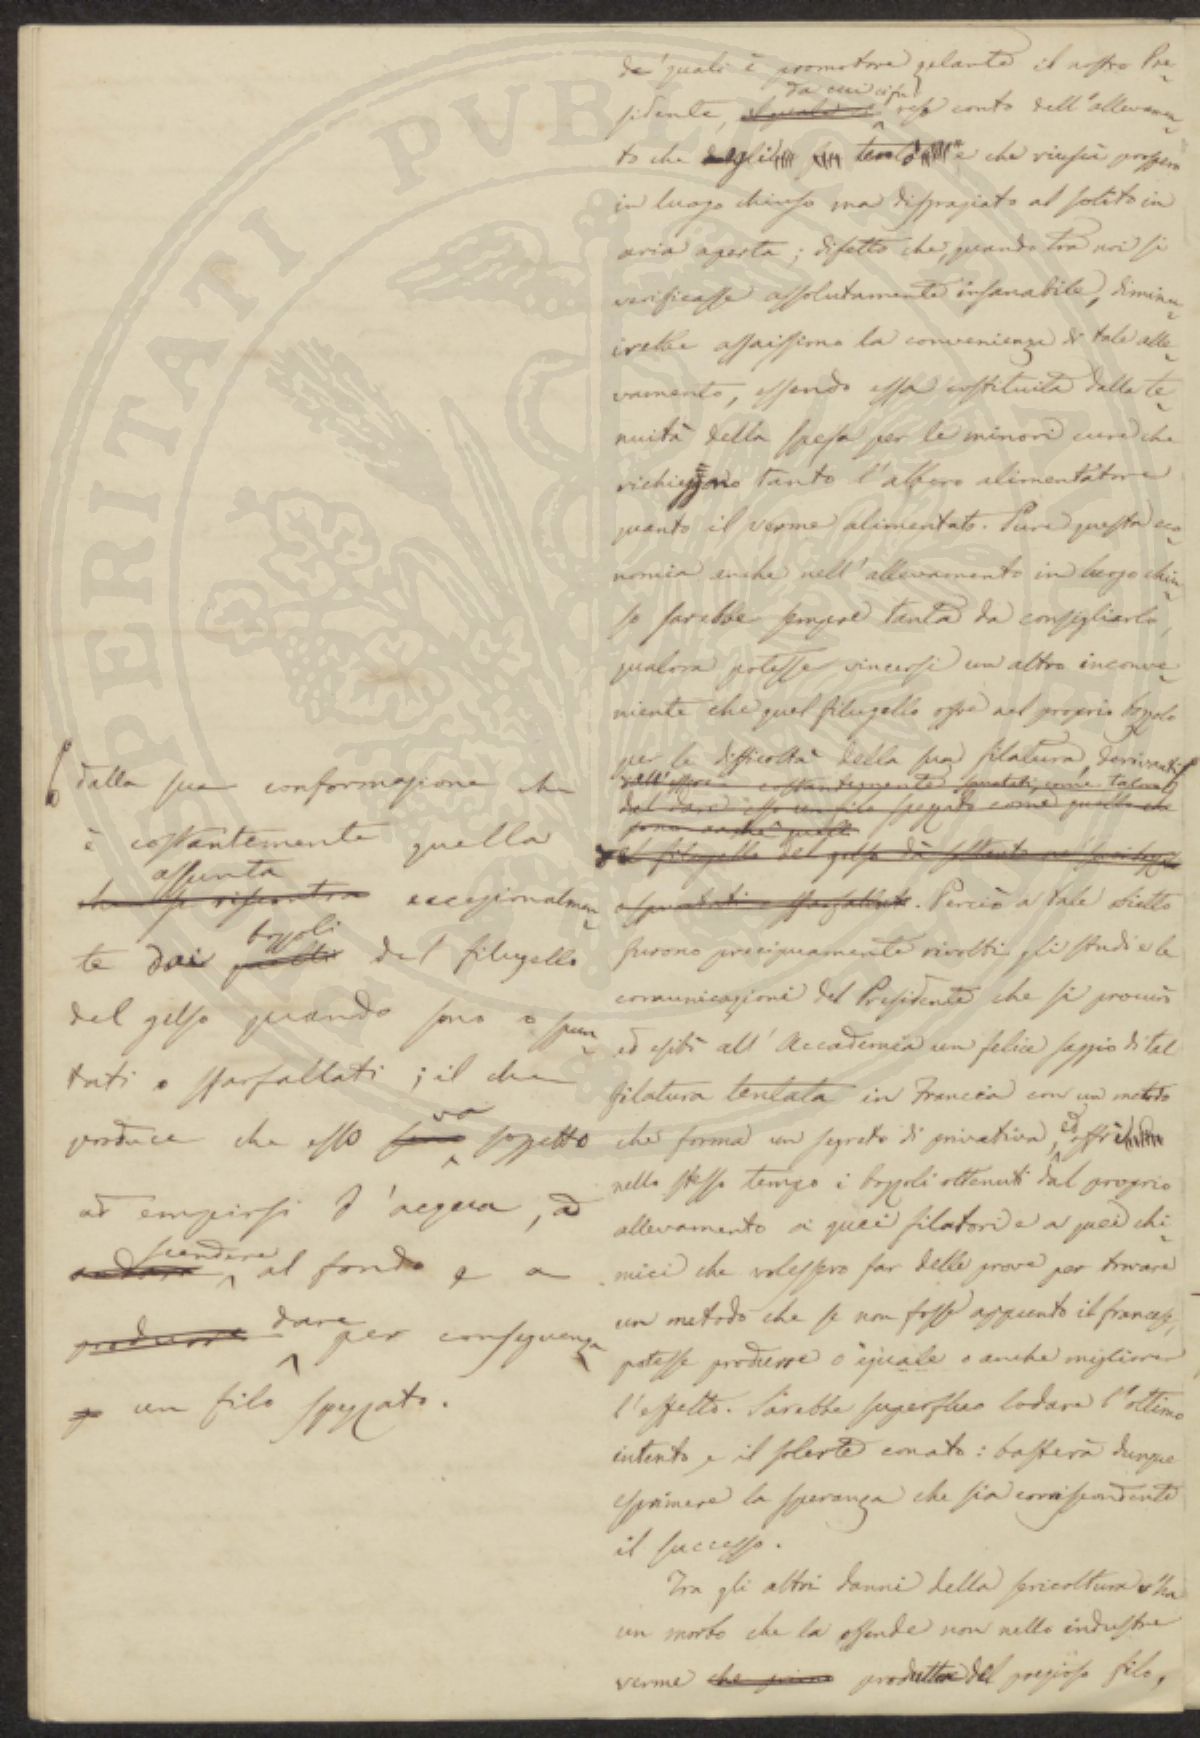 de' quali è promotore zelante il nostro Pre-
da cui ci fu
sidente, ~~il quale ci~~ reso conto dell'allevamen-
to che egli tentò e che riuscì prospero
in luogo chiuso ma disgraziato al solito in
aria aperta; difetto che, quando tra noi si
verificasse assolutamente insanabile, diminu-
irebbe assaissimo la convenienza di tale alle-
vamento, essendo essa costituita dalla te-
nuità della spesa per le minori cure che
richieggono tanto l'albero alimentatore
quanto il verme alimentato. Pure questa eco-
nomia anche nell'allevamento in luogo chiu-
so sarebbe sempre tanta da consigliarlo,
qualora potesse vincersi un altro inconve-
niente che quel filugello offre nel proprio bozzolo
per le difficoltà della sua filatura, derivanti
~~dall'essere costantemente spuntati, come talvolta~~
~~dal dare esso un filo spezzato come quello che~~
~~sono anche quelli~~
~~il filugello del gelso dà soltanto ne' suoi bozzoli~~
~~o spuntati o sfarfallati~~. Perciò a tale obietto
furono precipuamente rivolti gli studi e le
comunicazioni del Presidente che si procurò
ed esibì all'Accademia un felice saggio di tal
filatura tentata in Francia con un metodo
che forma un segreto di privativa, ed offrì
nello stesso tempo i bozzoli ottenuti dal proprio
allevamento a quei filatori e a quei chi-
mici che volessero far delle prove per trovare
un metodo che se non fosse appunto il francese,
potesse produrre o eguale o anche migliore
l'effetto. Sarebbe superfluo lodare l'ottimo
intento e il solerte conato: basterà dunque
esprimere la speranza che sia corrispondente
il successo.
Tra gli altri danni della sericoltura v'ha
un morbo che la offende non nello industre
verme ~~che primo~~ produttore del prezioso filo,
dalla sua conformazione che
è costantemente quella
assunta
~~che si riscontra~~ eccezionalmen-
bozzoli
te dai ~~quelli~~ del filugello
del gelso quando sono o spun-
tati o sfarfallati; il che
va
produce che esso soggetto
ad empirsi d'acqua, a
scendere
~~andare~~ al fondo e a
dare
~~produrre~~ per conseguenza
un filo spezzato.
PERITATI PUBLICAE